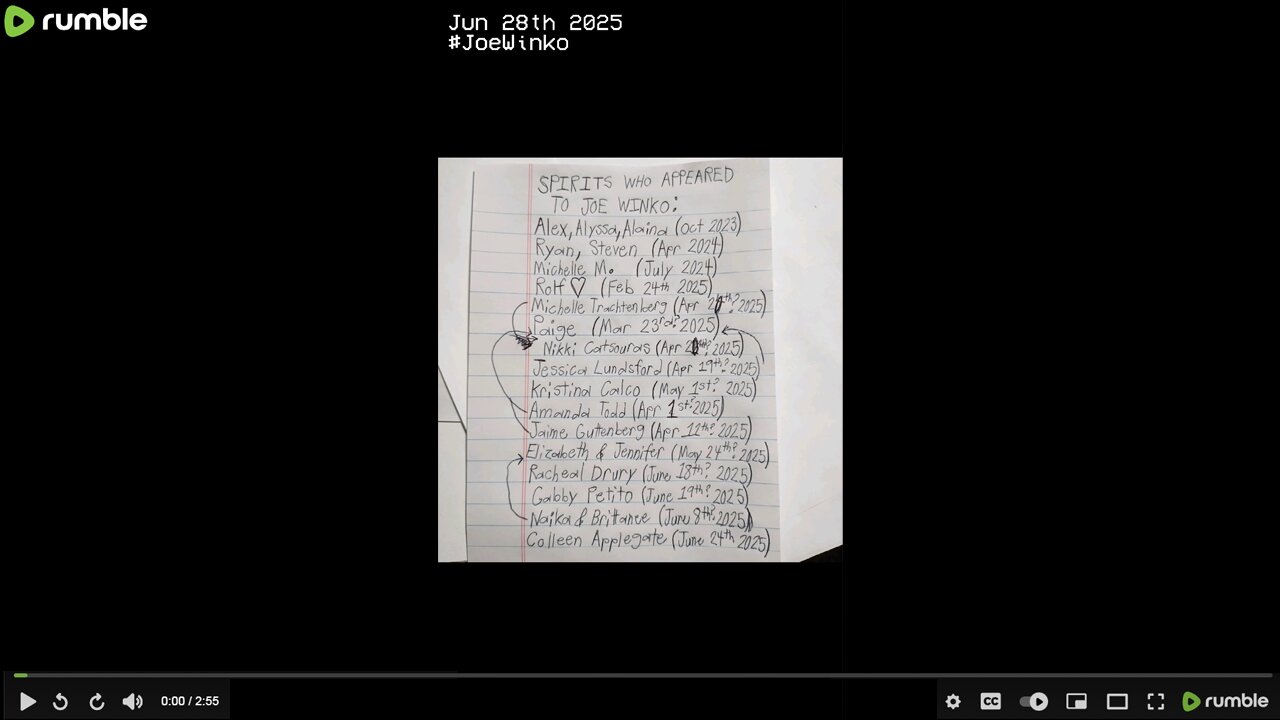 rumble
Jun 28th 2025
#JoeWinko
SPIRITS WHO APPEARED
TO JOE WINKO:
Alex, Alyssa, Alaina (Oct 2023)
Ryan, Steven (Apr 2024)
Michelle M. (July 2024)
Rolf ♡ (Feb 24th 2025)
Michelle Trachtenberg (Apr 2 th? 2025)
Paige (Mar 23rd? 2025)
Nikki Catsouras (Apr 2 th? 2025)
Jessica Lundsford (Apr 19th? 2025)
Kristina Calco (May 1st? 2025)
Amanda Todd (Apr 1st? 2025)
Jaime Gutenberg (Apr 12th? 2025)
Elizabeth & Jennifer (May 24th? 2025)
Racheal Drury (June 18th? 2025)
Gabby Petito (June 19th? 2025)
Naika & Brittanee (June 8th? 2025)
Colleen Applegate (June 24th 2025)
0:00 / 2:55
CC
rumble